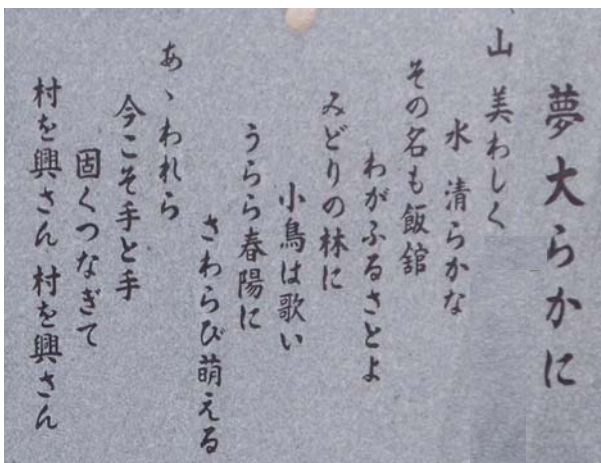 夢大らかに
山 美わしく
水 清らかな
その名も飯舘
わがふるさとよ
みどりの林に
小鳥は歌い
うらら春陽に
さわらび萌える
あゝわれら
今こそ手と手
固くつなぎて
村を興さん 村を興さん